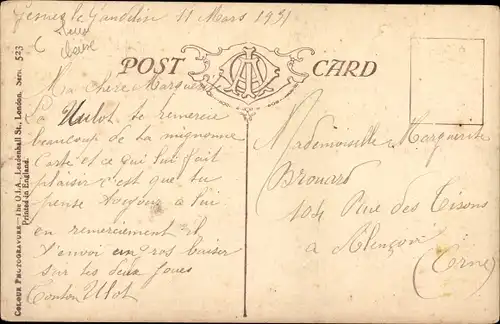 Gesnes le Gandelin 11 Mars 1931
POST CARD
Ma chère Marguerite
Ta Hulot te remercie
beaucoup de ta mignonne
Carte et ce qui lui fait
plaisir c'est que tu
pense toujour à lui
en remerciement il
t'envoi un gros baiser
sur tes deux joues
Tonton Ulot
Mademoiselle Marguerite
Brouard
104 Rue des Tisons
à Alençon
(Orne)
COLOUR PHOTOGRAVURE—The O.J.A. Leadenhall St., London. Seri. 523
Printed in England.